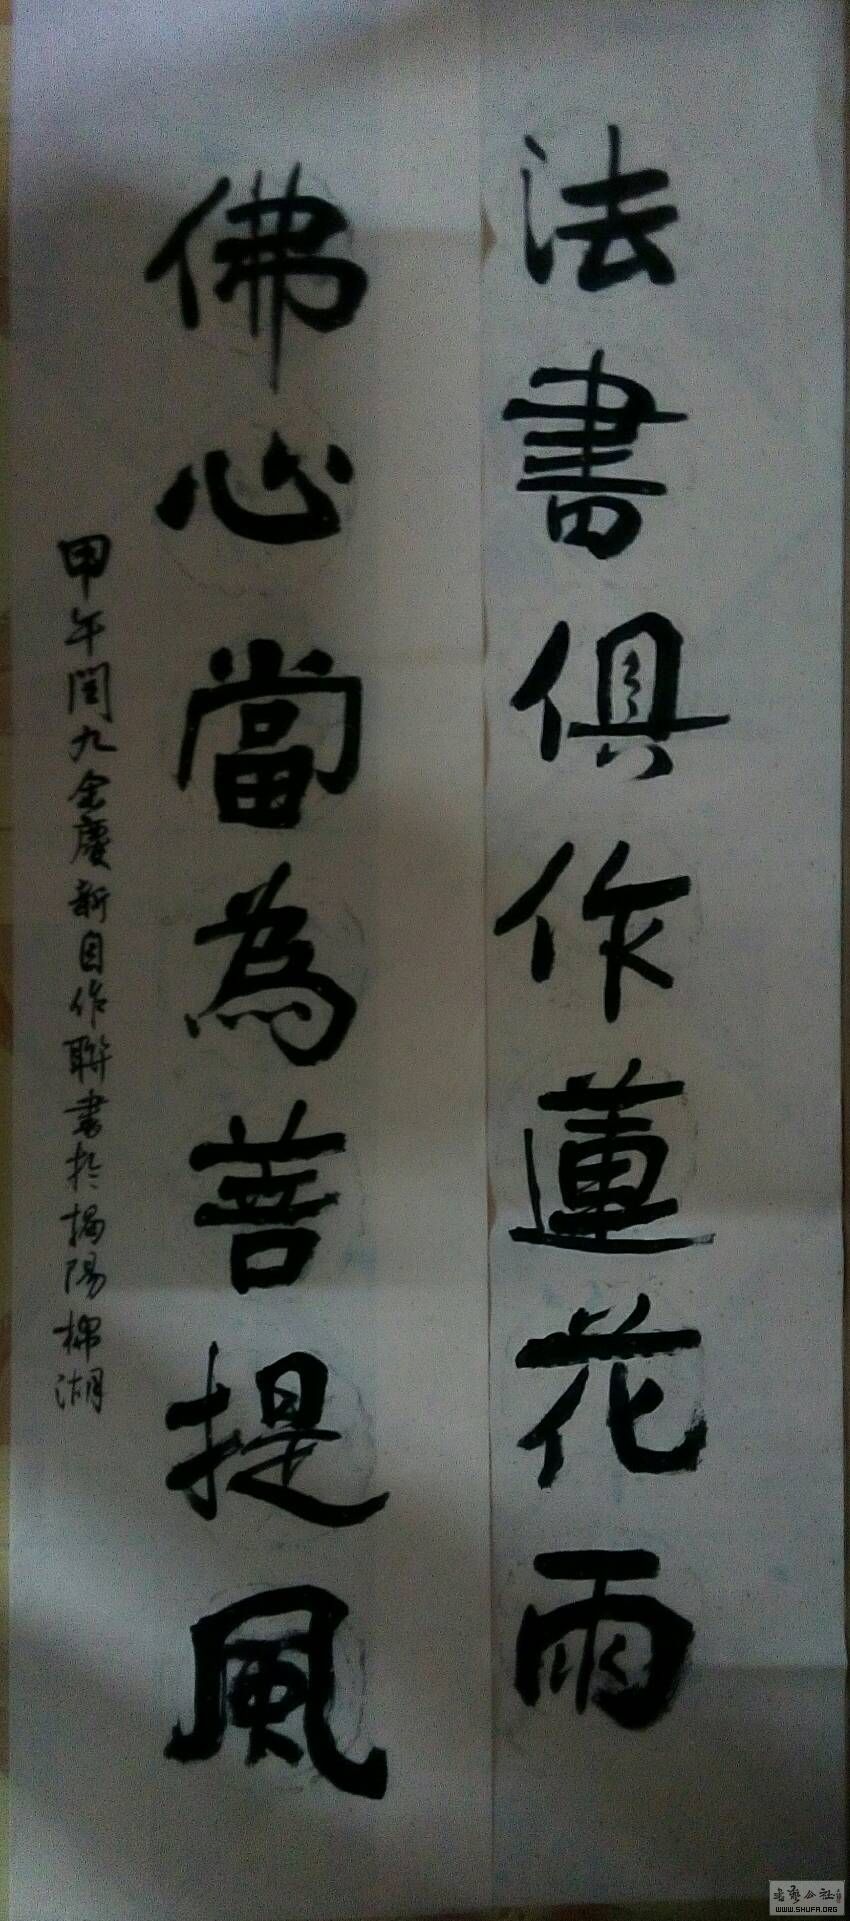 法書俱作蓮花雨
佛心當為菩提風
甲午閏九金慶新自作聯書於揭陽棉湖
書藝公社
WWW.SHUFA.ORG